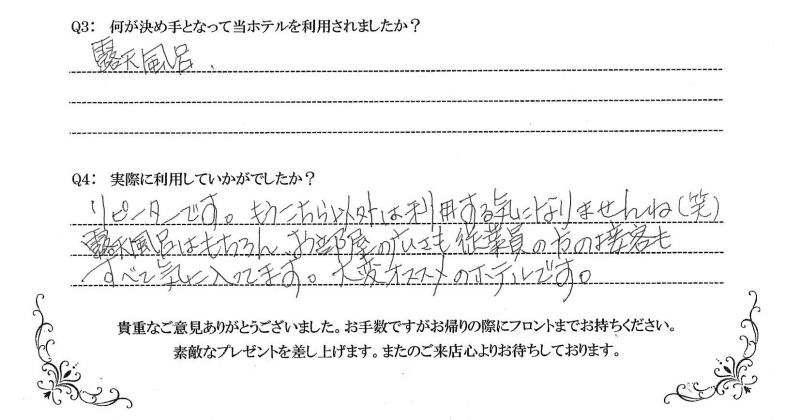 Q3： 何が決め手となって当ホテルを利用されましたか？
露天風呂.
Q4： 実際に利用していかがでしたか？
リピーターです。もうこちら以外は利用する気になりませんね(笑)
露天風呂はもちろん、お部屋の広さも従業員の方の接客も
すべて気に入ってます。大変オススメのホテルです。
貴重なご意見ありがとうございました。お手数ですがお帰りの際にフロントまでお持ちください。
素敵なプレゼントを差し上げます。またのご来店心よりお待ちしております。